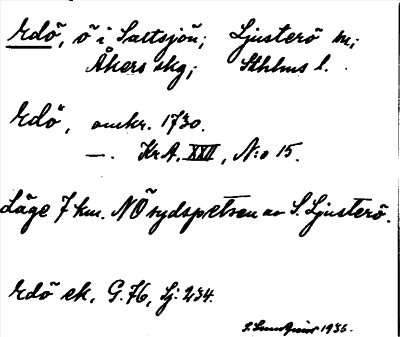 Edö, ö i Saltsjön; Ljusterö sn;
Åkers skg; Sthlms l.
Edö, omkr. 1730.
—. KrA, XXII, N:o 15.
Läge 7 km. NÖ sydspetsen av S. Ljusterö.
Edö ek. G. 76, Sj: 234.
1936.